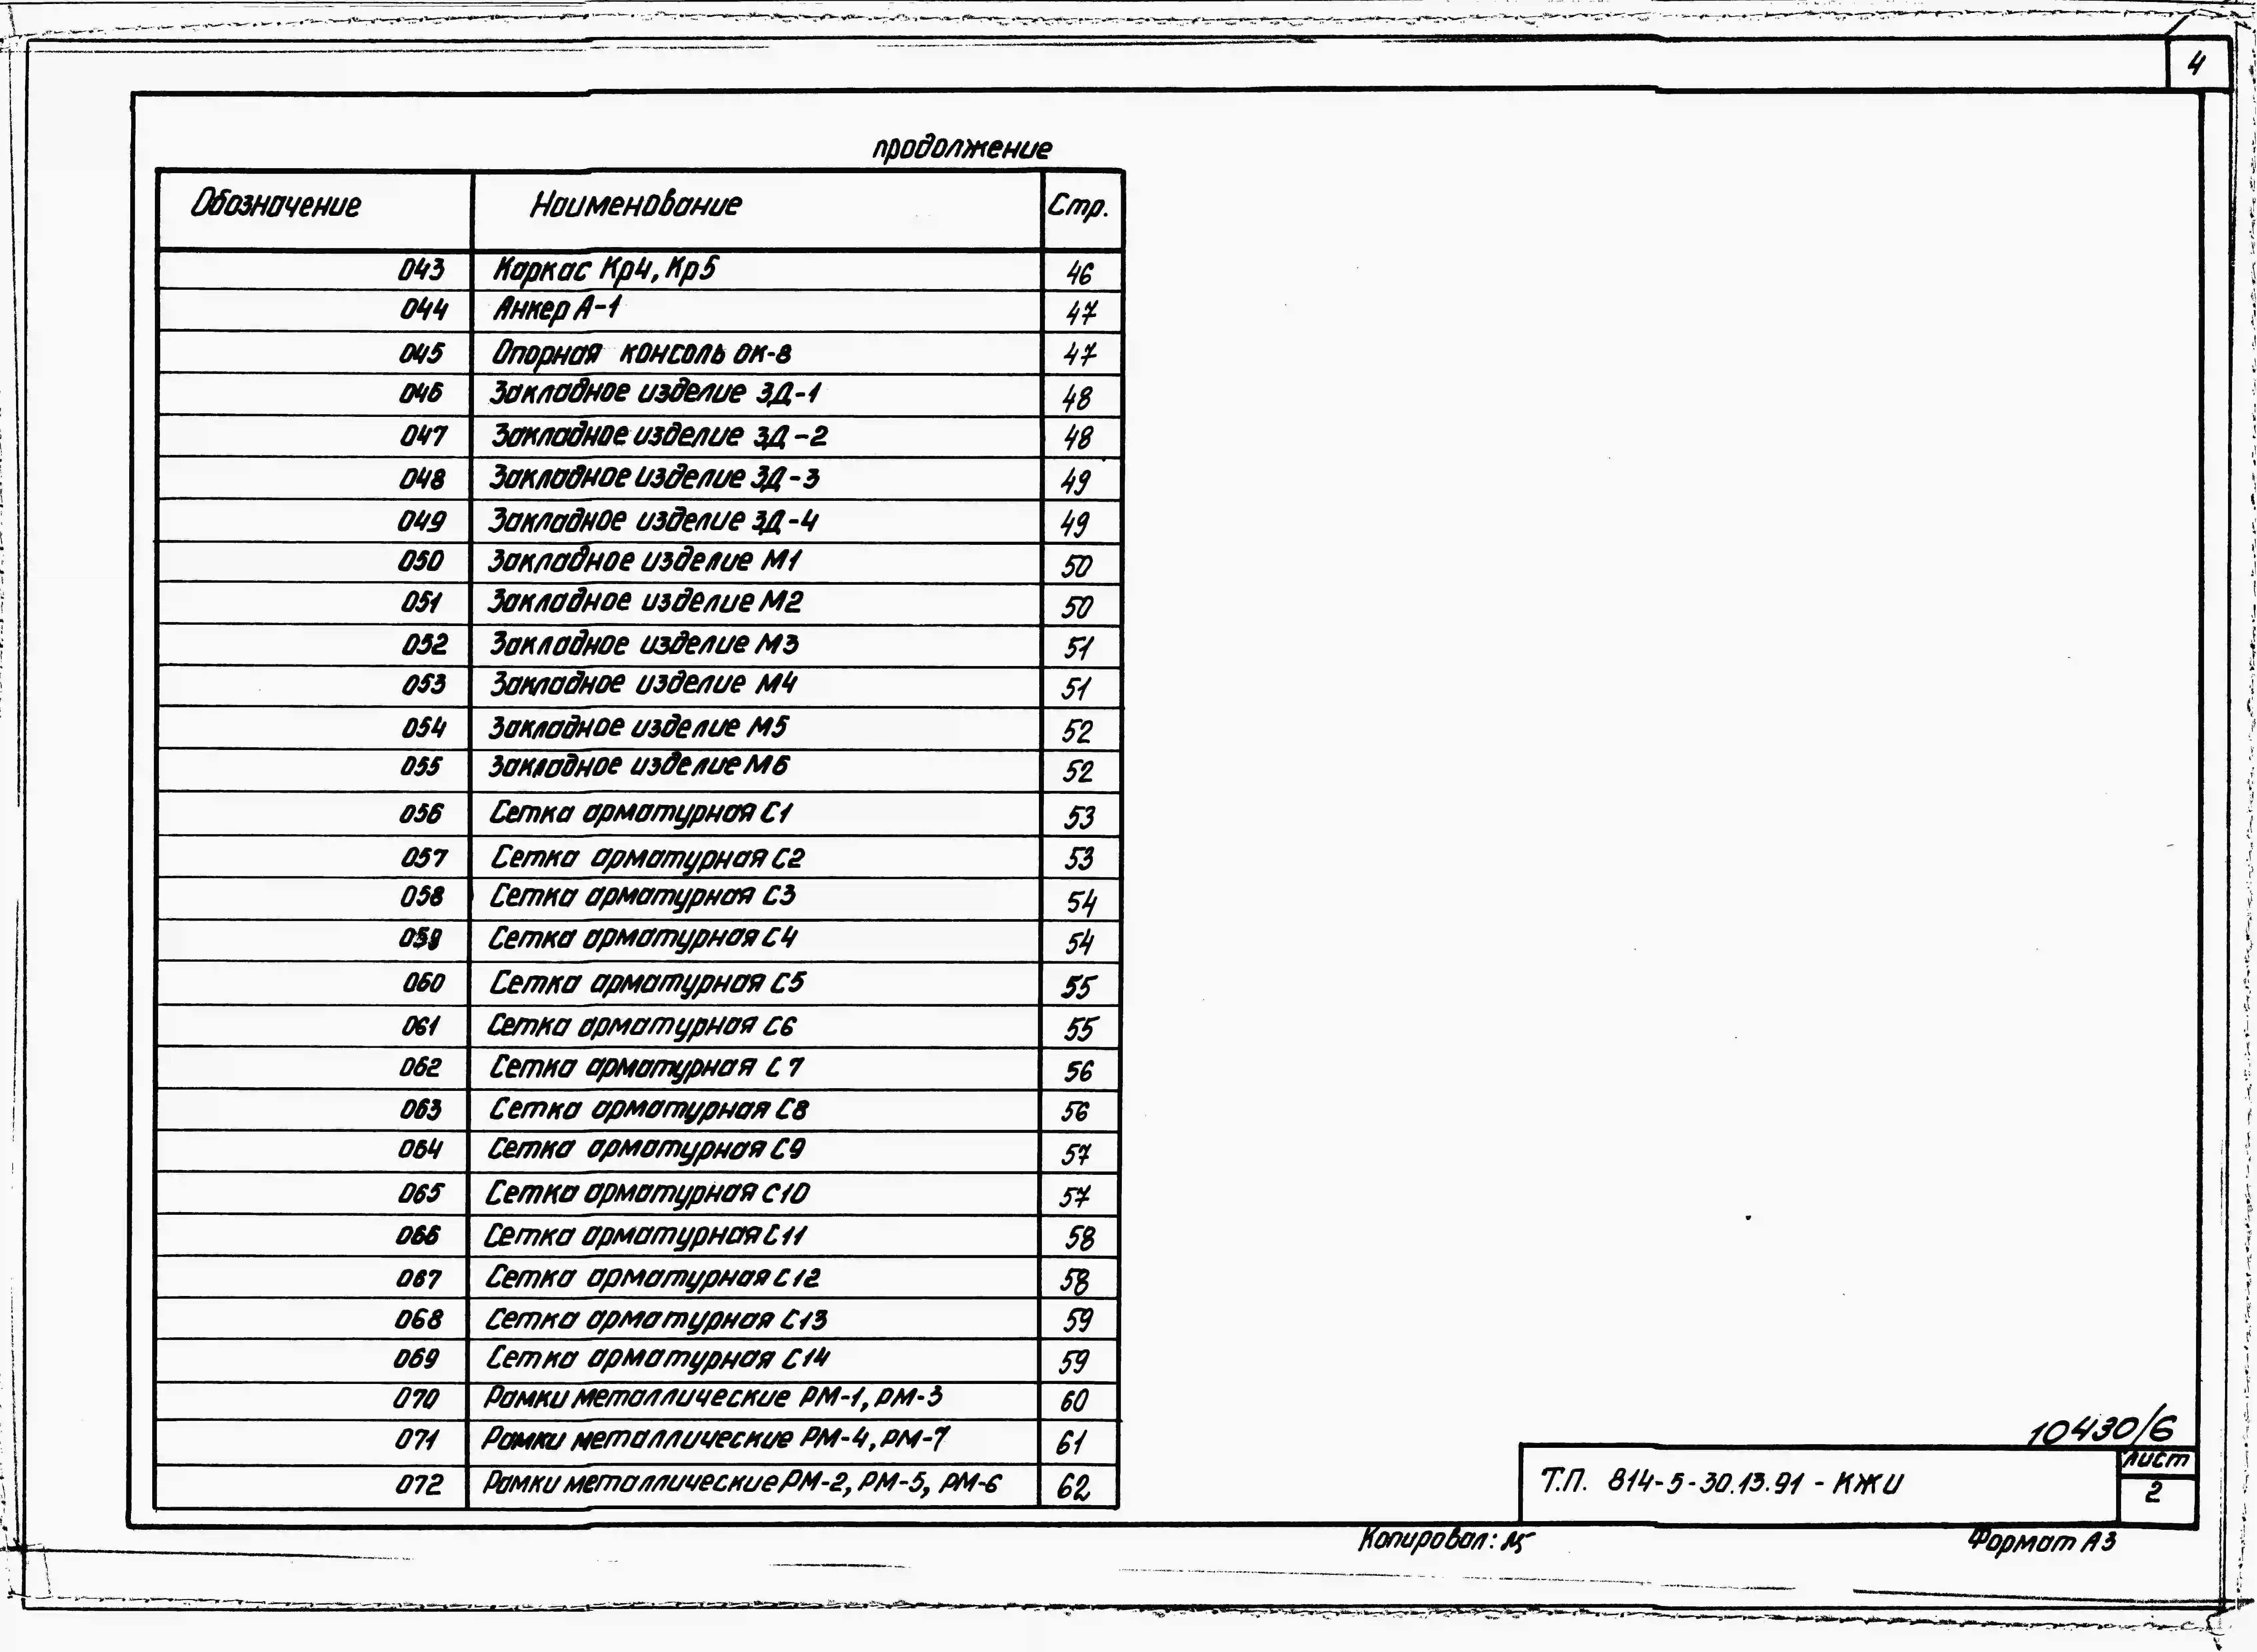 4
продолжение
Обозначение Наименование Стр.
043 Каркас Кр4, Кр5 46
044 Анкер А-1 47
045 Опорная консоль ОК-8 47
046 Закладное изделие ЗД-1 48
047 Закладное изделие ЗД-2 48
048 Закладное изделие ЗД-3 49
049 Закладное изделие ЗД-4 49
050 Закладное изделие М1 50
051 Закладное изделие М2 50
052 Закладное изделие М3 51
053 Закладное изделие М4 51
054 Закладное изделие М5 52
055 Закладное изделие М6 52
056 Сетка арматурная С1 53
057 Сетка арматурная С2 53
058 Сетка арматурная С3 54
059 Сетка арматурная С4 54
060 Сетка арматурная С5 55
061 Сетка арматурная С6 55
062 Сетка арматурная С7 56
063 Сетка арматурная С8 56
064 Сетка арматурная С9 57
065 Сетка арматурная С10 57
066 Сетка арматурная С11 58
067 Сетка арматурная С12 58
068 Сетка арматурная С13 59
069 Сетка арматурная С14 59
070 Рамки металлические РМ-1, РМ-3 60
071 Рамки металлические РМ-4, РМ-7 61
072 Рамки металлические РМ-2, РМ-5, РМ-6 62
10430/6
Т.П. 814-5-30.13.91 - КЖИ
лист
2
Копировал:
Формат А3